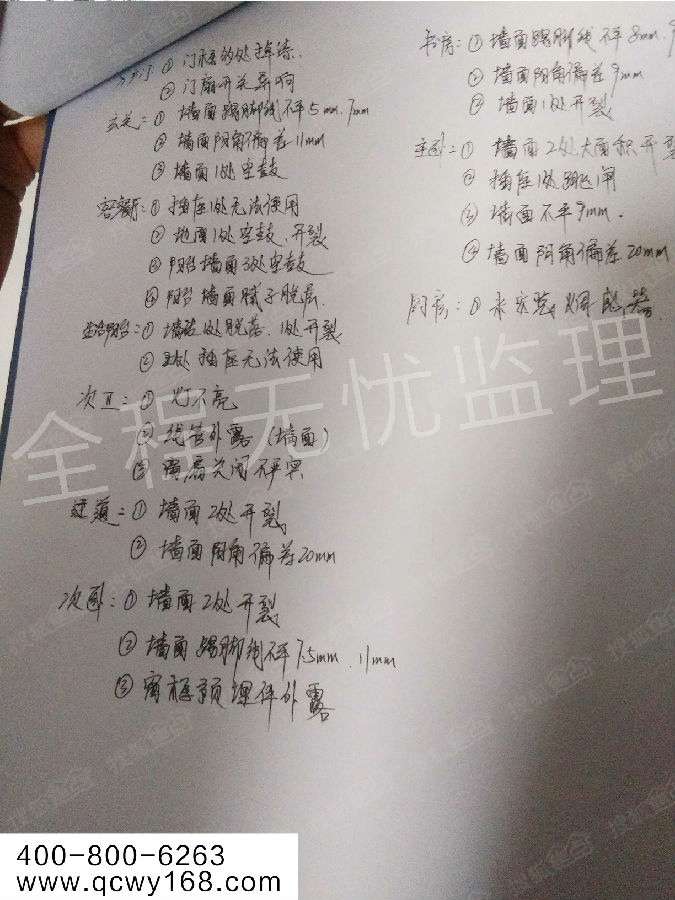 入户门: ① 门框1处掉漆.
② 门扇开关异响
玄关: ① 墙面踢脚线不平5mm.7mm
② 墙面阴角偏差11mm
③ 墙面1处空鼓
客餐厅: ① 插座1处无法使用
② 地面1处空鼓、开裂
③ 阳台墙面3处空鼓
④ 阳台墙面腻子脱层.
生活阳台: ① 墙砖1处脱落、1处开裂
② 处插座无法使用
次卫: ① 灯不亮
② 线管外露 (墙面)
③ 窗扇关闭不严
过道: ① 墙面2处开裂
② 墙面阴角偏差20mm
次卧: ① 墙面2处开裂
② 墙面踢脚线不平7.5mm.11mm
③ 窗框预埋件外露
书房: ① 墙面踢脚线不平8mm.9
② 墙面阴角偏差9mm
③ 墙面1处开裂
主卧: ① 墙面2处大面积开裂
② 插座1处跳闸
③ 墙面不平9mm.
④ 墙面阴角偏差20mm
厨房: ① 未安装烟感器.
全程无忧监理
搜狐焦点
400-800-6263
www.qcwy168.com